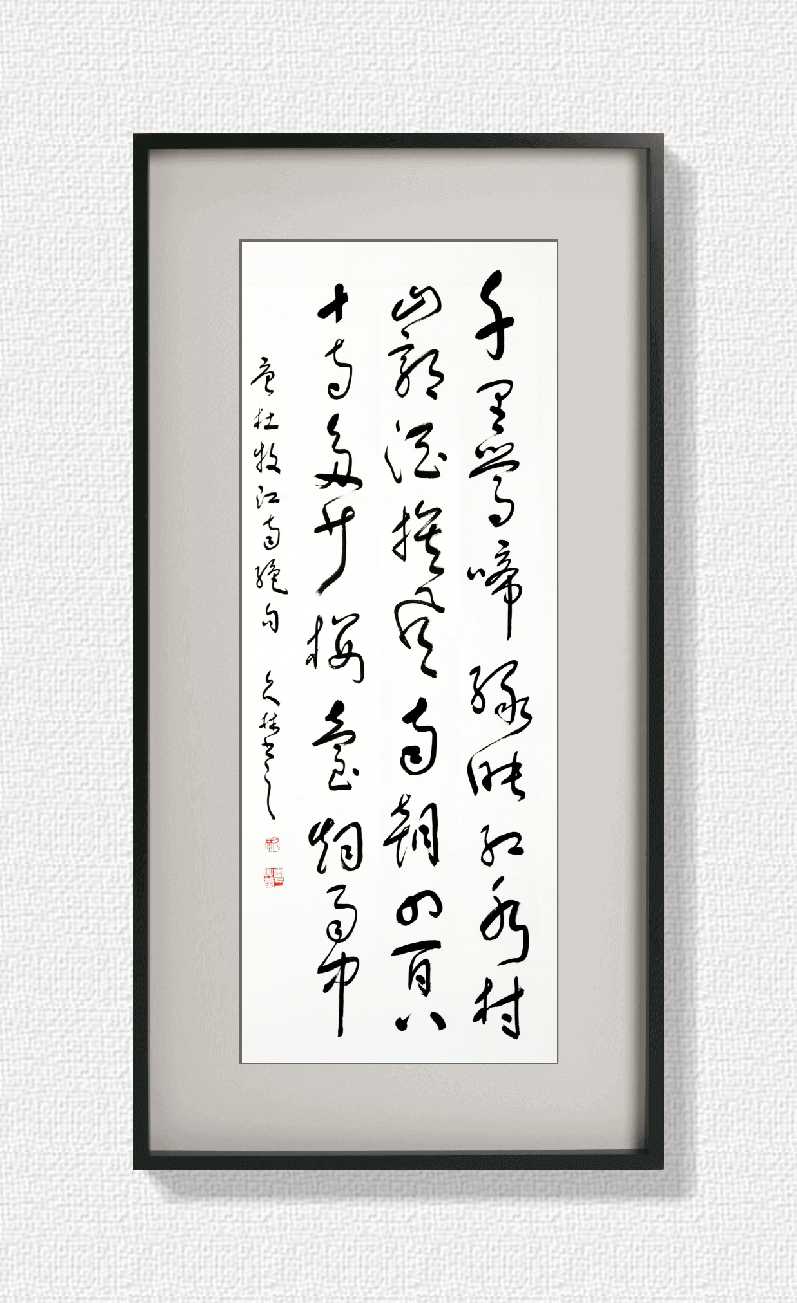 千里鶯啼綠映紅水村
山郭酒旗風南朝四百八
十寺多少樓臺烟雨中
杜牧江南絕句